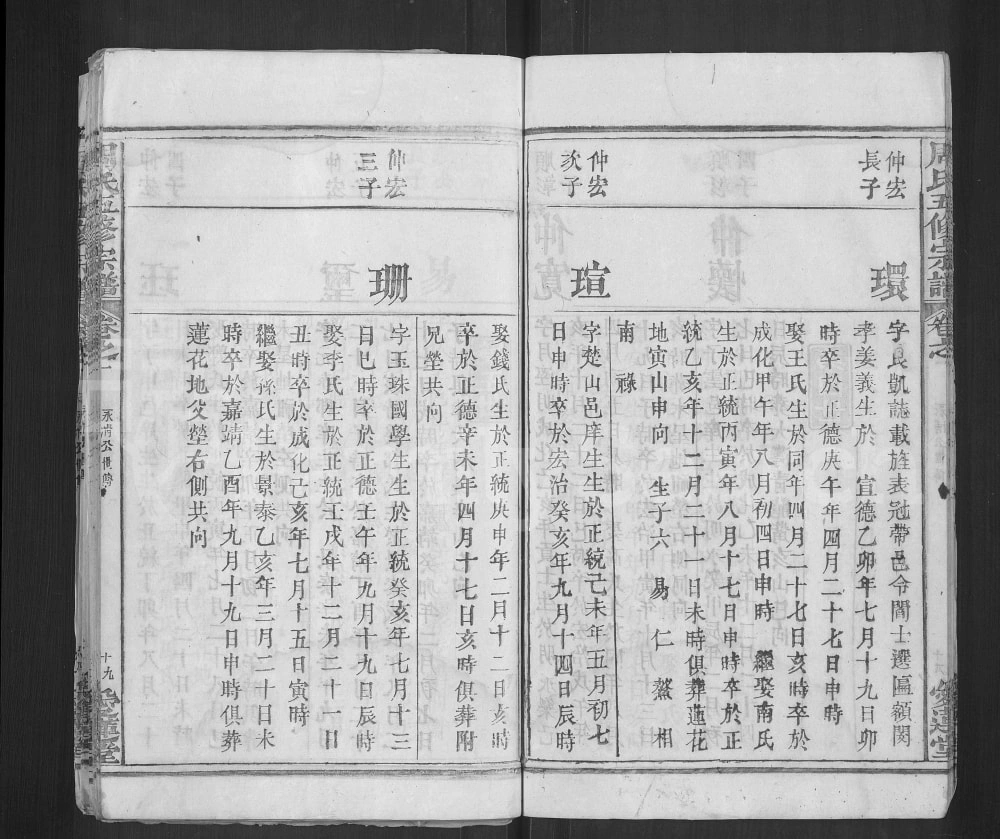 周氏五修宗譜
卷之
愛蓮堂
仲宏
長子
環
字良凱誌載旌表冠帶邑令閻士選匾額閔
孝姜義生於 宣德乙卯年七月十九日卯
時卒於正德庚午年四月二十七日申時
娶王氏生於同年四月二十七日亥時卒於
成化甲午年八月初四日申時 繼娶南氏
生於正統丙寅年八月十七日申時卒於正
統乙亥年十二月二十一日未時俱葬蓮花
地寅山申向 生子六 易 仁 鰲 相
南 祿
仲宏
次子
瑄
字楚山邑庠生生於正統己未年五月初七
日申時卒於宏治癸亥年九月十四日辰時
娶錢氏生於正統庚申年二月十二日亥時
卒於正德辛未年四月十七日亥時俱葬附
兄塋共向
仲宏
三子
珊
字玉珠國學生生於正統癸亥年七月十三
日巳時卒於正德壬午年九月十九日辰時
娶李氏生於正統壬戌年十二月二十一日
丑時卒於成化己亥年七月十五日寅時
繼娶孫氏生於景泰乙亥年三月二十日未
時卒於嘉靖乙酉年九月十九日申時俱葬
蓮花地父塋右側共向
周氏五修宗譜
卷之一
永清公世傳
十九
愛蓮堂